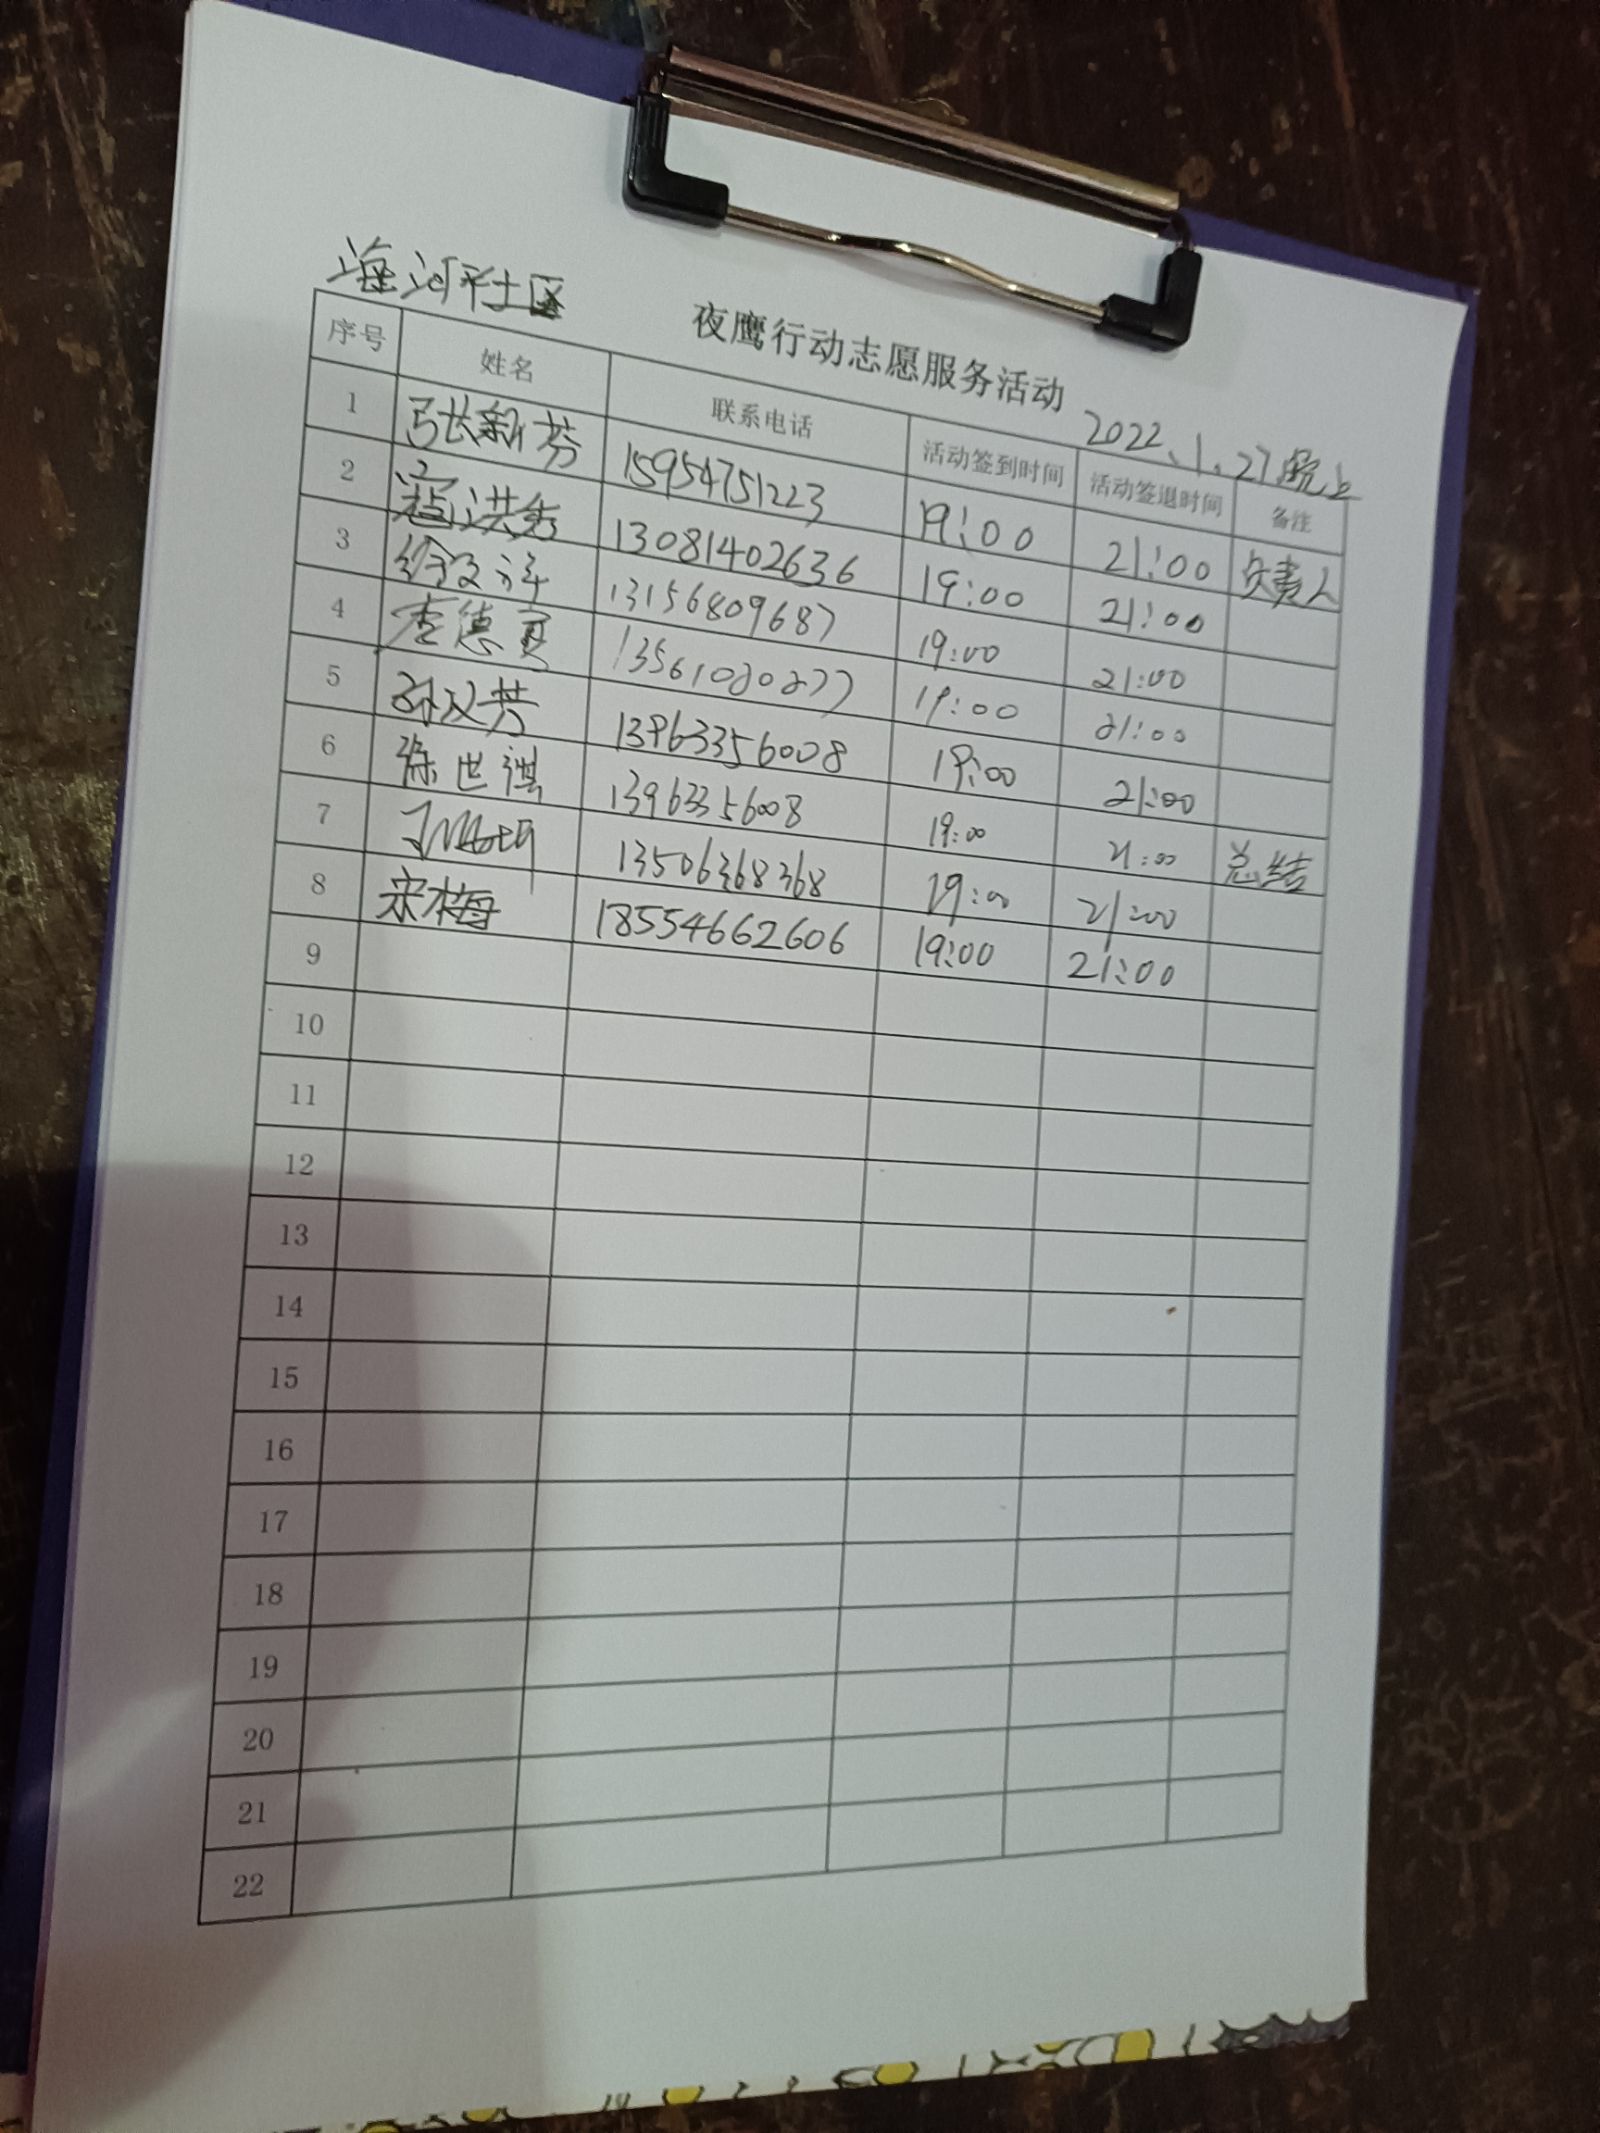 海河社区
夜鹰行动志愿服务活动
2022、1、27晚上
序号 姓名 联系电话 活动签到时间 活动签退时间 备注
1 张新芬 15954751223 19:00 21:00 负责人
2 寇洪秀 13081402636 19:00 21:00
3 13156809687 19:00 21:00
4 李德 13561080877 19:00 21:00
5 孙义芳 13963356008 19:00 21:00
6 徐世祺 13963356008 19:00 21:00 总结
7 13506368368 19:00 21:00
8 宋梅 18554662606 19:00 21:00
9
10
11
12
13
14
15
16
17
18
19
20
21
22